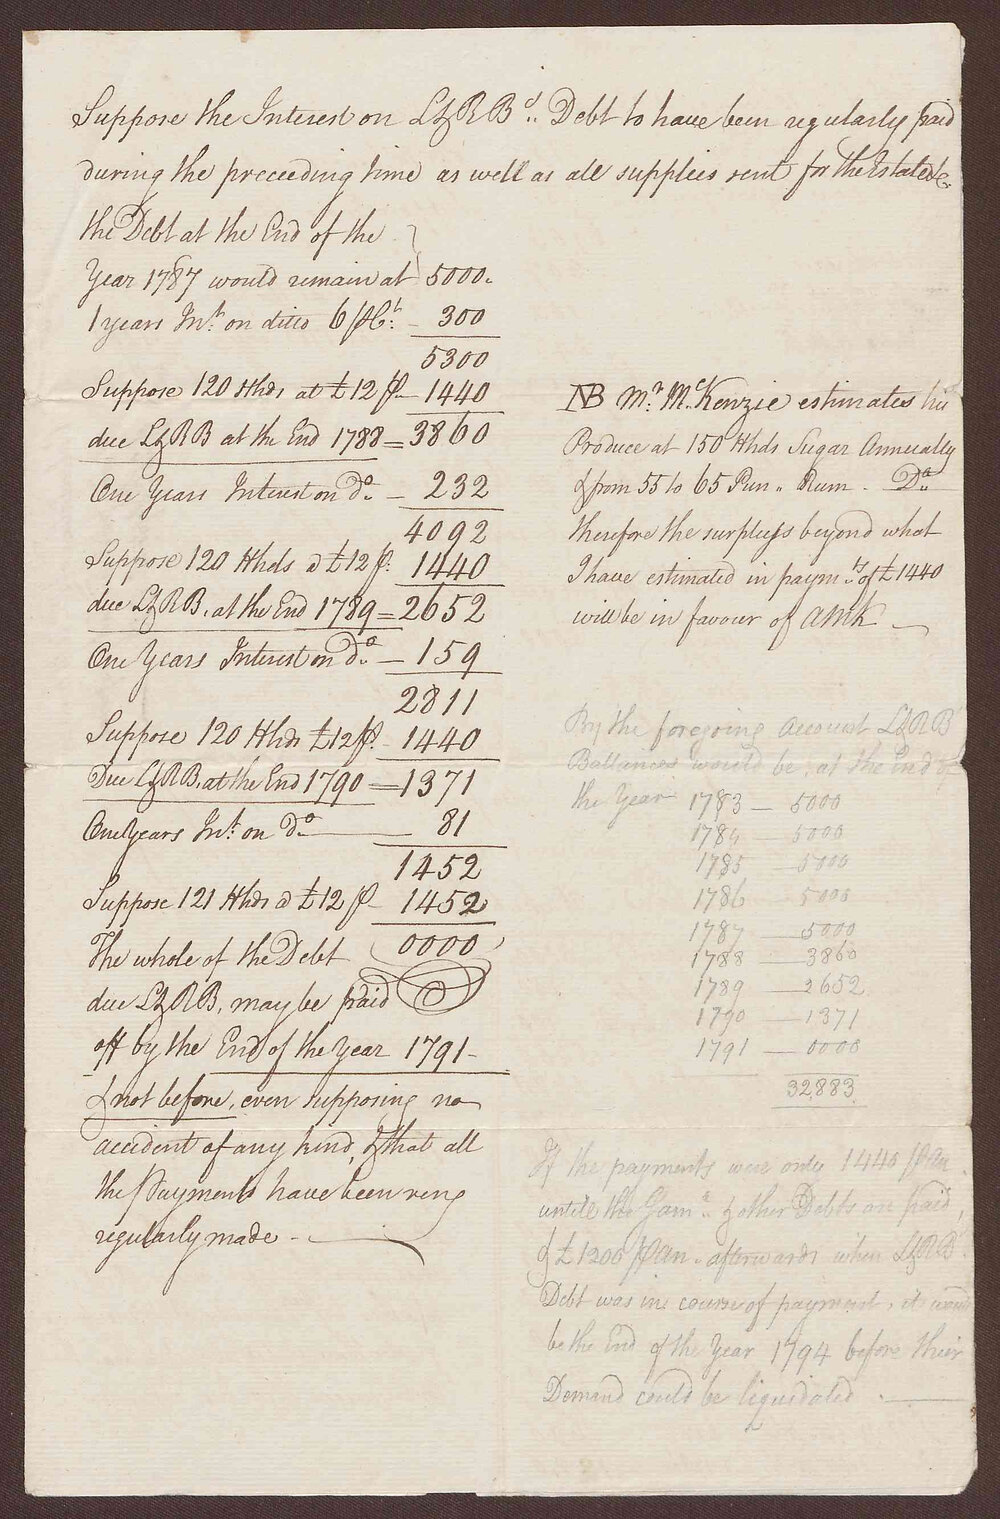 Suppose the Interest on L&RBs.. Debt to have been regularly paid
during the preceeding time as well as all supplies sent for the Estate &c.
the Debt at the End of the
Year 1787 would remain at 5000.
1 years Int. on ditto 6 p Ct. 300
5300
Suppose 120 Hhds at £12 p 1440
due L&RB at the End 1788 = 3860
One Years Interest on Do. – 232
4092
Suppose 120 Hhds a £12 p. 1440
due L&RB, at the End 1789 = 2652
One Years Interest on Do. – 159
2811
Suppose 120 Hhds £12 p. 1440
Due L&RB. at the End 1790 = 1371
One Years Int. on Do. 81
1452
Suppose 121 Hhds a £12 p 1452
The whole of the Debt 0000
due L&RB, may be paid
off by the End of the Year 1791 –
& not before, even supposing no
accident of any kind, & that all
the Payments have been very
regularly made –
NB Mr. McKenzie estimates his
Produce at 150 Hhds Sugar Annually
& from 55 to 65 Pun.. Rum – Do..
therefore the surpluss beyond what
I have estimated in paymts. of £1440
will be in favour of AMK –
By the foregoing Account L&RB
Ballances would be, at the End of
the Year 1783 – 5000
1784 – 5000
1785 – 5000
1786 – 5000
1787 – 5000
1788 – 3860
1789 – 2652
1790 – 1371
1791 – 0000
32,883
If the payments were only 1440 p An
untill the Jama. & other Debts are paid,
& £1200 p An. afterwards when L&RB
Debt was in course of payment, it would
be the End of the Year 1794 before their
Demand could be liquidated.